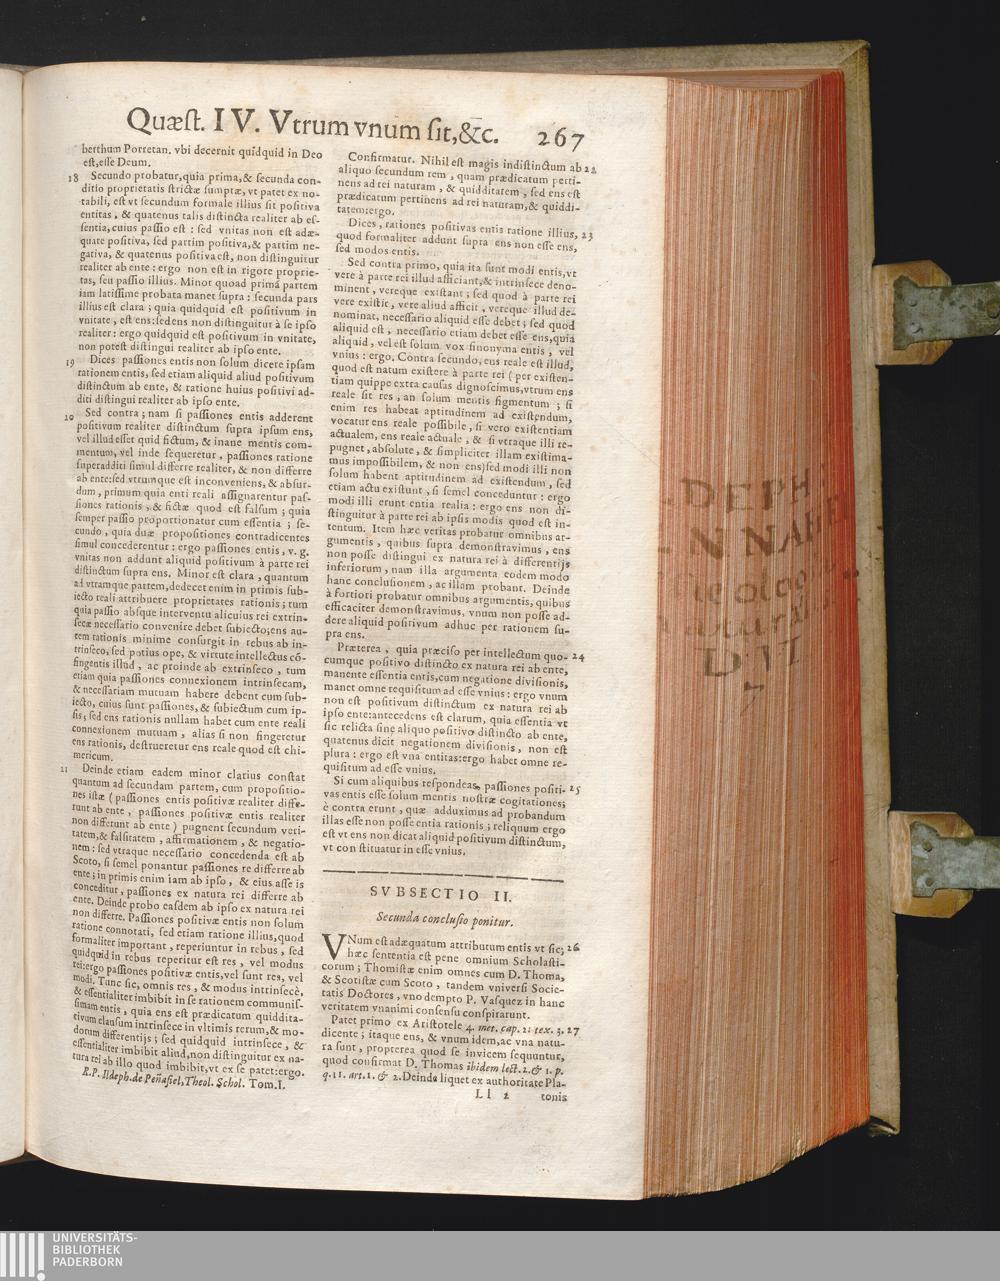 Quæst. IV. Vtrum vnum sit,&c. 267
berthum Porretan. vbi decernit quidquid in Deo
est,esse Deum.
18 Secundo probatur,quia prima,& secunda con-
ditio proprietatis strictæ sumptæ, vt patet ex no-
tabili, est vt secundum formale illius sit positiva
entitas, & quatenus talis distincta realiter ab es-
sentia,cuius passio est : sed vnitas non est adæ-
quate positiva, sed partim positiva,& partim ne-
gativa, & quatenus positiva est, non distinguitur
realiter ab ente : ergo non est in rigore proprie-
tas, seu passio illius. Minor quoad primã partem
iam latissime probata manet supra : secunda pars
illius est clara ; quia quidquid est positivum in
vnitate, est ens:sed ens non distinguitur à se ipso
realiter: ergo quidquid est positivum in vnitate,
non potest distingui realiter ab ipso ente.
19 Dices passiones entis non solum dicere ipsam
rationem entis, sed etiam aliquid aliud positivum
distinctum ab ente, & ratione huius positivi ad-
diti distingui realiter ab ipso ente.
20 Sed contra ; nam si passiones entis adderent
positivum realiter distinctum supra ipsum ens,
vel illud esset quid fictum, & inane mentis com-
mentum, vel inde sequeretur, passiones ratione
superadditi simul differre realiter, & non differre
ab ente:sed vtrumque est inconveniens, & absur-
dum, primum quia enti reali assignarentur pas-
siones rationis, & fictæ quod est falsum ; quia
semper passio proportionatur cum essentia ; se-
cundo, quia duæ propositiones contradicentes
simul concederentur : ergo passiones entis, v. g.
vnitas non addunt aliquid positivum à parte rei
distinctum supra ens. Minor est clara, quantum
ad vtramque partem,dedecet enim in primis sub-
iecto reali attribuere proprietates rationis ; tum
quia passio absque interventu alicuius rei extrin-
secæ necessario convenire debet subiecto;ens au-
tem rationis minime consurgit in rebus ab in-
trinseco, sed potius ope, & virtute intellectus cõ-
fingentis illud, ac proinde ab extrinseco, tum
etiam quia passiones connexionem intrinsecam,
& necessariam mutuam habere debent cum sub-
iecto, cuius sunt passiones, & subiectum cum ip-
sis; sed ens rationis nullam habet cum ente reali
connexionem mutuam, alias si non fingeretur
ens rationis, destrueretur ens reale quod est chi-
mericum.
21 Deinde etiam eadem minor clarius constat
quantum ad secundam partem, cum propositio-
nes istæ ( passiones entis positivæ realiter diffe-
runt ab ente, passiones positivæ entis realiter
non differunt ab ente ) pugnent secundum veri-
tatem,& falsitatem, affirmationem, & negatio-
nem : sed vtraque necessario concedenda est ab
Scoto, si semel ponantur passiones re differre ab
ente ; in primis enim iam ab ipso, & eius asse is
conceditur, passiones ex natura rei differre ab
ente. Deinde probo easdem ab ipso ex natura rei
non differre. Passiones positivæ entis non solum
ratione connotati, sed etiam ratione illius,quod
formaliter important, reperiuntur in rebus, sed
quidquid in rebus reperitur est res, vel modus
rei:ergo passiones positivæ entis,vel sunt res, vel
modi. Tunc sic, omnis res, & modus intrinsecè,
& essentialiter imbibit in se rationem communis-
simam entis, quia ens est prædicatum quiddita-
tivum clausum intrinsece in vltimis rerum,& mo-
dorum differentijs ; sed quidquid intrinsece, &
essentialiter imbibit aliud,non distinguitur ex na-
tura rei ab illo quod imbibit,vt ex se patet:ergo.
R.P. Ildeph.de Peñafiel,Theol. Schol. Tom.I.
Confirmatur. Nihil est magis indistinctum ab 22
aliquo secundum rem, quam prædicatum perti-
nens ad rei naturam, & quidditatem, sed ens est
prædicatum pertinens ad rei naturam,& quiddi-
tatem:ergo.
Dices, rationes positivas entis ratione illius, 23
quod formaliter addunt supra ens non esse ens,
sed modos entis.
Sed contra primo, quia ita sunt modi entis,vt
vere à parte rei illud afficiant,& intrinsece deno-
minent, vereque existant ; sed quod à parte rei
vere existit, vere aliud afficit, vereque illud de-
nominat, necessario aliquid esse debet ; sed quod
aliquid est, necessario etiam debet esse ens,quia
aliquid, vel est solum vox sinonyma entis, vel
vnius : ergo. Contra secundo, ens reale est illud,
quod est natum existere à parte rei ( per existen-
tiam quippe extra causas dignoscimus,vtrum ens
reale sit res, an solum mentis figmentum ; si
enim res habeat aptitudinem ad existendum,
vocatur ens reale possibile, si vero existentiam
actualem, ens reale actuale, & si vtraque illi re-
pugnet, absolute, & simpliciter illam existima-
mus impossibilem, & non ens)sed modi illi non
solum habent aptitudinem ad existendum, sed
etiam actu existunt, si semel conceduntur : ergo
modi illi erunt entia realia : ergo ens non di-
stinguitur à parte rei ab ipsis modis quod est in-
tentum. Item hæc veritas probatur omnibus ar-
gumentis, quibus supra demonstravimus, ens
non posse distingui ex natura rei à differentijs
inferiorum, nam illa argumenta eodem modo
hanc conclusionem, ac illam probant. Deinde
à fortiori probatur omnibus argumentis, quibus
efficaciter demonstravimus, vnum non posse ad-
dere aliquid positivum adhuc per rationem su-
pra ens.
Præterea, quia præciso per intellectum quo- 24
cumque positivo distincto ex natura rei ab ente,
manente essentia entis,cum negatione divisionis,
manet omne requisitum ad esse vnius : ergo vnum
non est positivum distinctum ex natura rei ab
ipso ente:antecedens est clarum, quia essentia vt
sic relicta sine aliquo positivo distincto ab ente,
quatenus dicit negationem divisionis, non est
plura : ergo est vna entitas:ergo habet omne re-
quisitum ad esse vnius.
Si cum aliquibus respondeas, passiones positi- 25
vas entis esse solum mentis nostræ cogitationes;
è contra erunt, quæ adduximus ad probandum
illas esse non posse entia rationis ; reliquum ergo
est vt ens non dicat aliquid positivum distinctum,
vt constituatur in esse vnius.
SVBSECTIO II.
Secunda conclusio ponitur.
VNum est adæquatum attributum entis vt sic; 26
hæc sententia est pene omnium Scholasti-
corum ; Thomistæ enim omnes cum D. Thoma,
& Scotistæ cum Scoto, tandem vniversi Socie-
tatis Doctores, vno dempto P. Vasquez in hanc
veritatem vnanimi consensu conspirarunt.
Patet primo ex Aristotele 4. met. cap. 2. tex. 3. 27
dicente ; itaque ens, & vnum idem,ac vna natu-
ra sunt, propterea quod se invicem sequuntur,
quod confirmat D. Thomas ibidem lect. 2. & 1. p.
q. 11. art. 1. & 2. Deinde liquet ex authoritate Pla-
Ll 2 tonis
UNIVERSITÄTS-
BIBLIOTHEK
PADERBORN